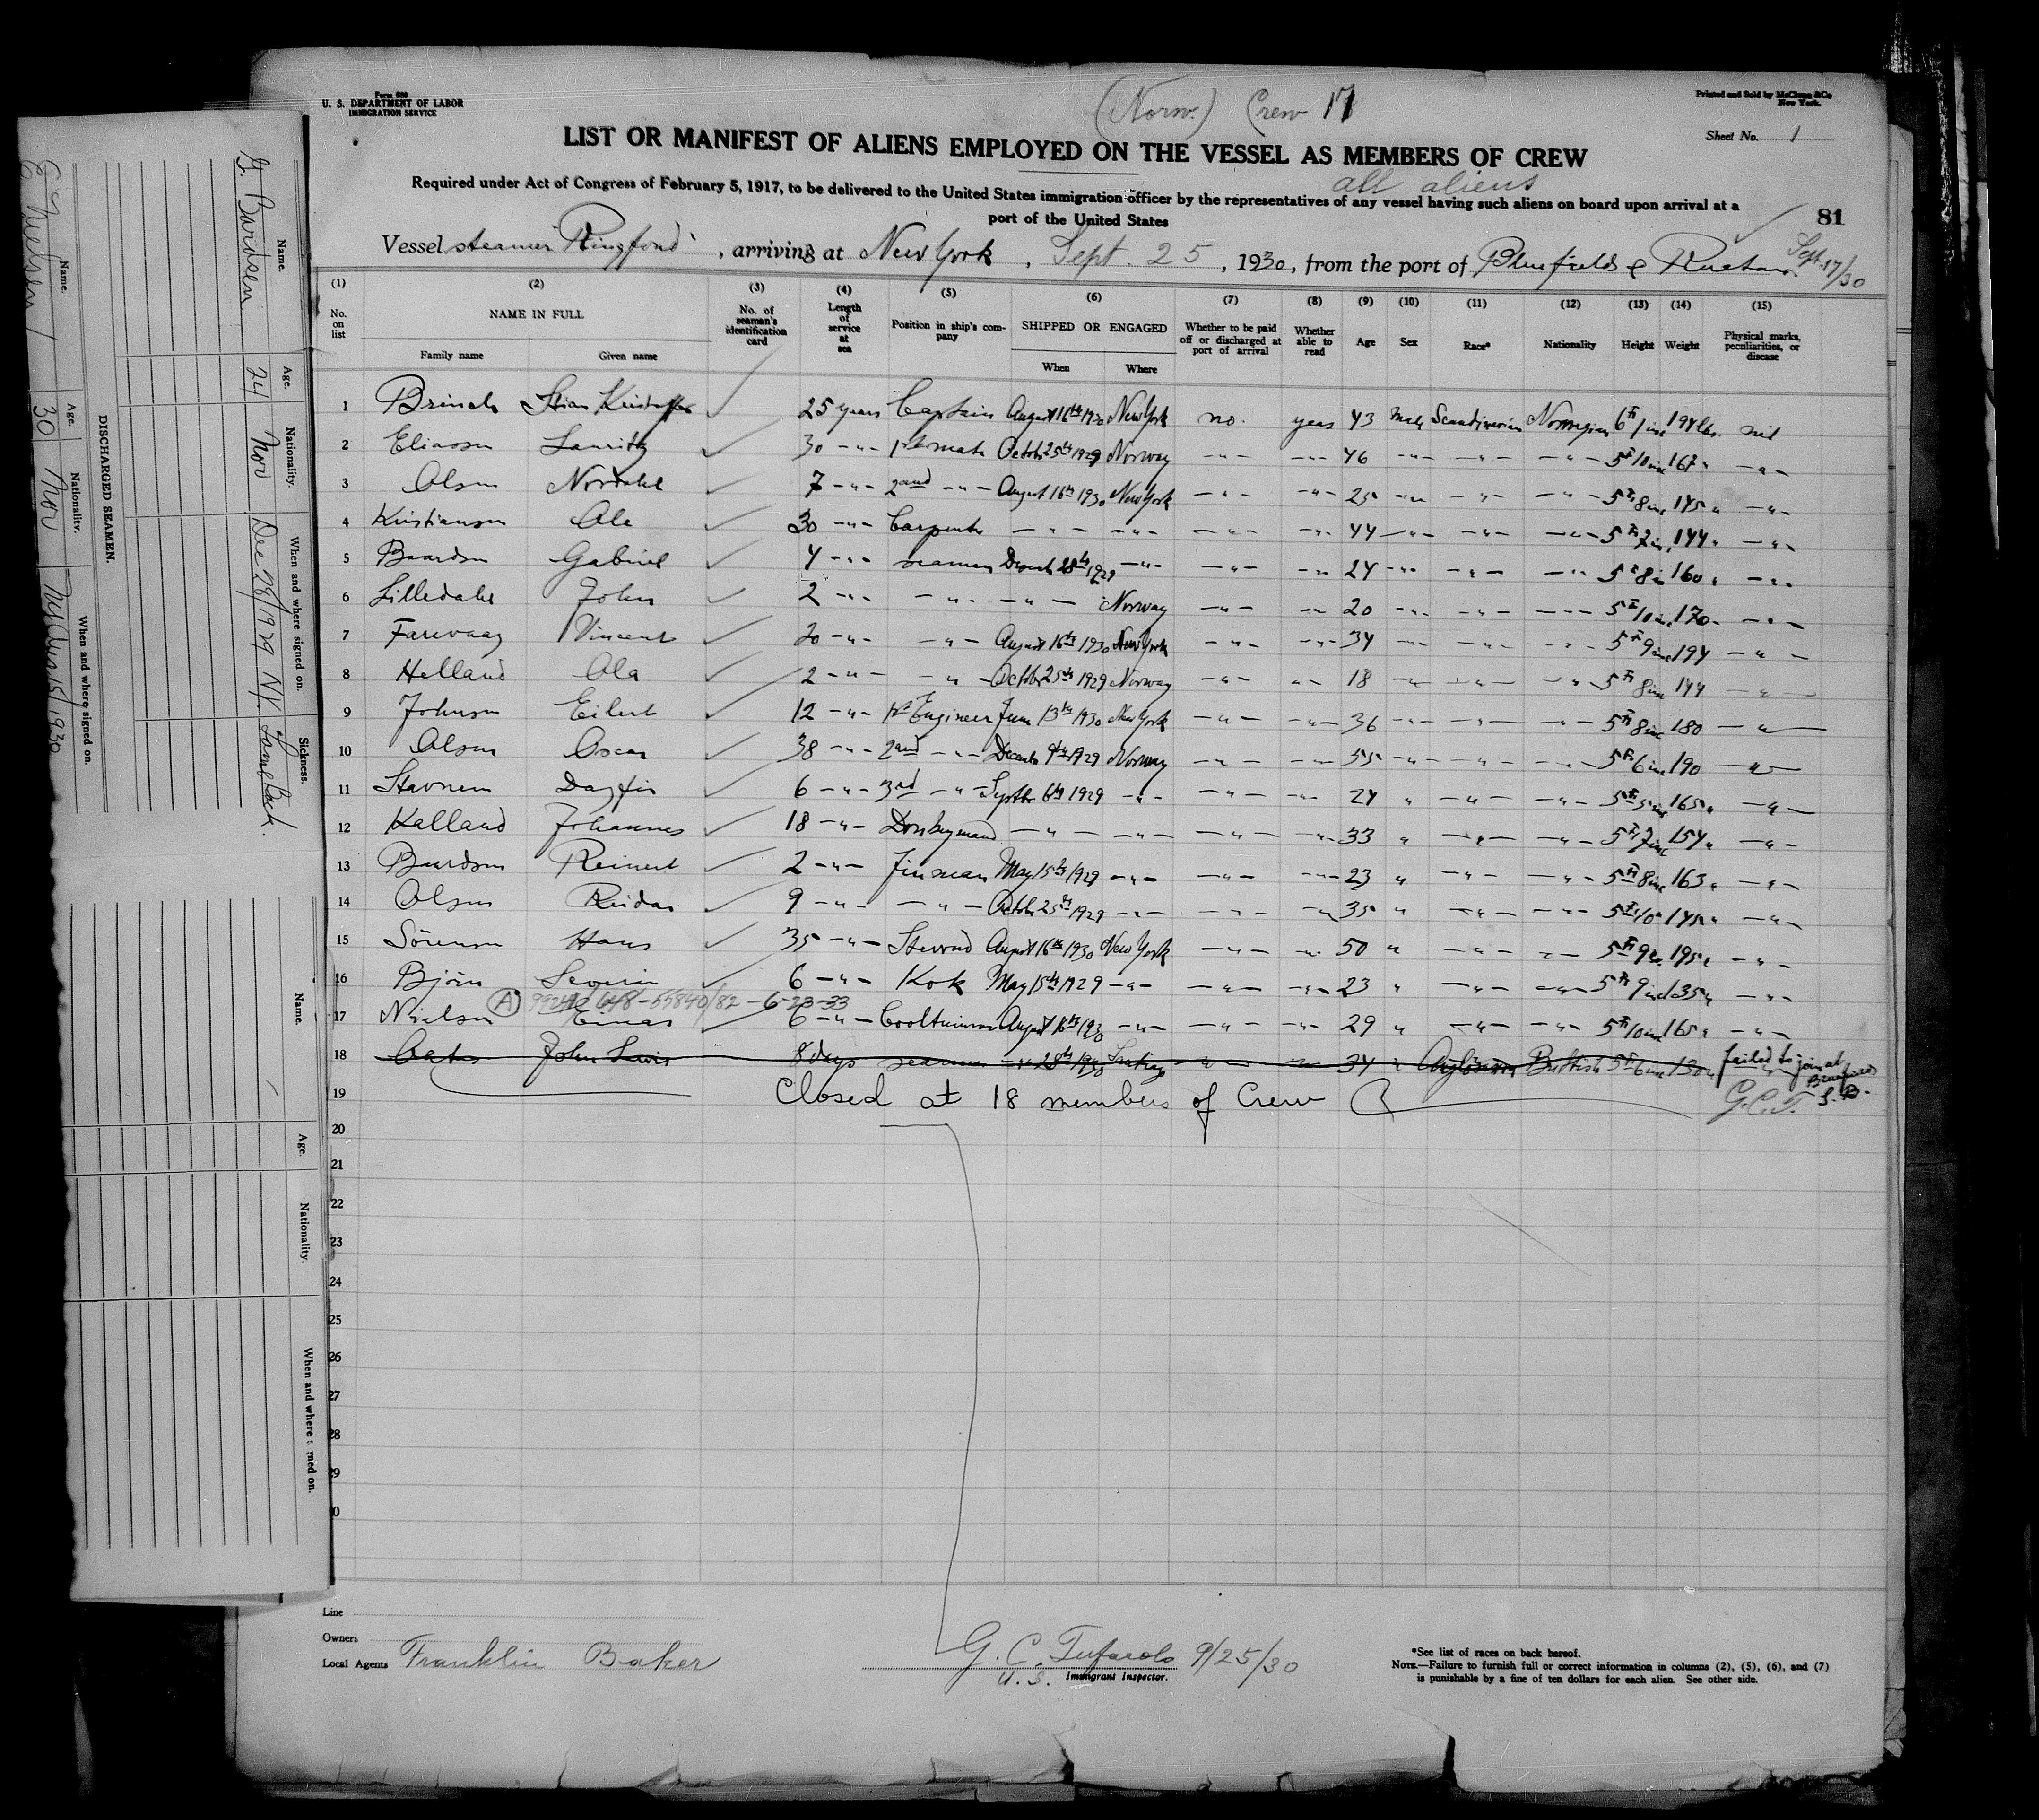 Form 680
U. S. DEPARTMENT OF LABOR
IMMIGRATION SERVICE
(Norw.) Crew 17
Printed and Sold by McClunn &Co
New York.
Sheet No. 1
LIST OR MANIFEST OF ALIENS EMPLOYED ON THE VESSEL AS MEMBERS OF CREW
all aliens
Required under Act of Congress of February 5, 1917, to be delivered to the United States immigration officer by the representatives of any vessel having such aliens on board upon arrival at a
port of the United States
81
Vessel steamer Ringfond, arriving at New York, Sept. 25, 1930, from the port of Bluefields & Sept. 17/30
(1) (2) (3) (4) (5) (6) (7) (8) (9) (10) (11) (12) (13) (14) (15)
No. on list NAME IN FULL Family name Given name No. of seaman's identification card Length of service at sea Position in ship's company SHIPPED OR ENGAGED When Where Whether to be paid off or discharged at port of arrival Whether able to read Age Sex Race* Nationality Height Weight Physical marks, peculiarities, or disease
1 Brinch Stian 25 years Captain August 16th 1930 New York no. yes 43 male Scandinavian Norwegian 6 ft 1 inc 194 lbs. nil
2 Eliassen Lauritz 30 -"- 1st mate Octobr 25th 1929 Norway -"- -"- 46 -"- -"- -"- 5 ft 10 inc 167 " -"-
3 Olsen Nordahl 7 -"- 2and -"- August 16th 1930 New York -"- -"- 25 -"- -"- -"- 5 ft 8 inc 145 " -"-
4 Kristiansen Ole 30 -"- Carpenter -"- -"- -"- -"- 44 -"- -"- -"- 5 ft 7 in. 144 " -"-
5 Baardsen Gabriel 4 -"- seaman Decemb 28th 1929 -"- -"- -"- 24 -"- -"- -"- 5 ft 8 in 160 " -"-
6 Lilledahl John 2 -"- -"- -"- Norway -"- -"- 20 -"- -"- -"- 5 ft 10 inc 170 -"-
7 Farevaag Vincent 20 -"- -"- August 16th 1930 New York -"- -"- 34 -"- -"- -"- 5 ft 9 inc 194 -"-
8 Helland Ola 2 -"- -"- Octobr 25th 1929 Norway -"- -"- 18 -"- -"- -"- 5 ft 8 inc 144 -"-
9 Johnsen Eilert 12 -"- 1st Engineer June 13th 1930 New York -"- -"- 36 -"- -"- -"- 5 ft 8 inc 180 -"-
10 Olsen Oscar 38 -"- 2and -"- Decemb 9th 1929 Norway -"- -"- 55 -"- -"- -"- 5 ft 6 inc 190 -"-
11 Stavnem Dagfin 6 -"- 3rd -"- Septbr 6th 1929 -"- -"- -"- 24 " -"- -"- 5 ft 5 inc 165 " -"-
12 Kalland Johannes 18 -"- Donkeymand -"- -"- -"- -"- 33 " -"- -"- 5 ft 7 inc 154 " -"-
13 Baardsen Reinert 2 -"- Fireman May 15th 1929 -"- -"- -"- 23 " -"- -"- 5 ft 8 inc 163 " -"-
14 Olsen Reidar 9 -"- -"- Octobr 25th 1929 -"- -"- -"- 35 " -"- -"- 5 ft 10 " 145 " -"-
15 Sörensen Hans 35 -"- Steward August 16th 1930 New York -"- -"- 50 " -"- -"- 5 ft 9 195 -"-
16 Björn Severin 6 -"- Kok May 15th 1929 -"- -"- -"- 23 " -"- -"- 5 ft 9 inc 135 " -"-
(A) 55840/82 - 6-23-33
17 Nielsen Einar 6 -"- August 16th 1930 -"- -"- -"- 29 " -"- -"- 5 ft 10 inc 165 " -"-
18 Oates John Lewis 8 days seaman -"- 28th 1930 -"- -"- 34 " British 5 ft 6 inc 130 " failed to join at
19 Closed at 18 members of Crew
G.C.T.
20
21
22
23
24
25
26
27
28
29
30
Line
Owners
Local Agents Franklin Baker
G. C. Tufarolo 9/25/30
U.S. Immigrant Inspector.
*See list of races on back hereof.
NOTE.—Failure to furnish full or correct information in columns (2), (5), (6), and (7)
is punishable by a fine of ten dollars for each alien. See other side.
DISCHARGED SEAMEN.
Name. Age. Nationality. When and where signed on. Sickness.
G. Bardsen 24 Nor Dec 28/1929 N.Y. Lame Back.
Name. Age. Nationality. When and where signed on.
E Nielsen 30 Nor NY Aug 15/1930
Name. Age. Nationality. When and where signed on.